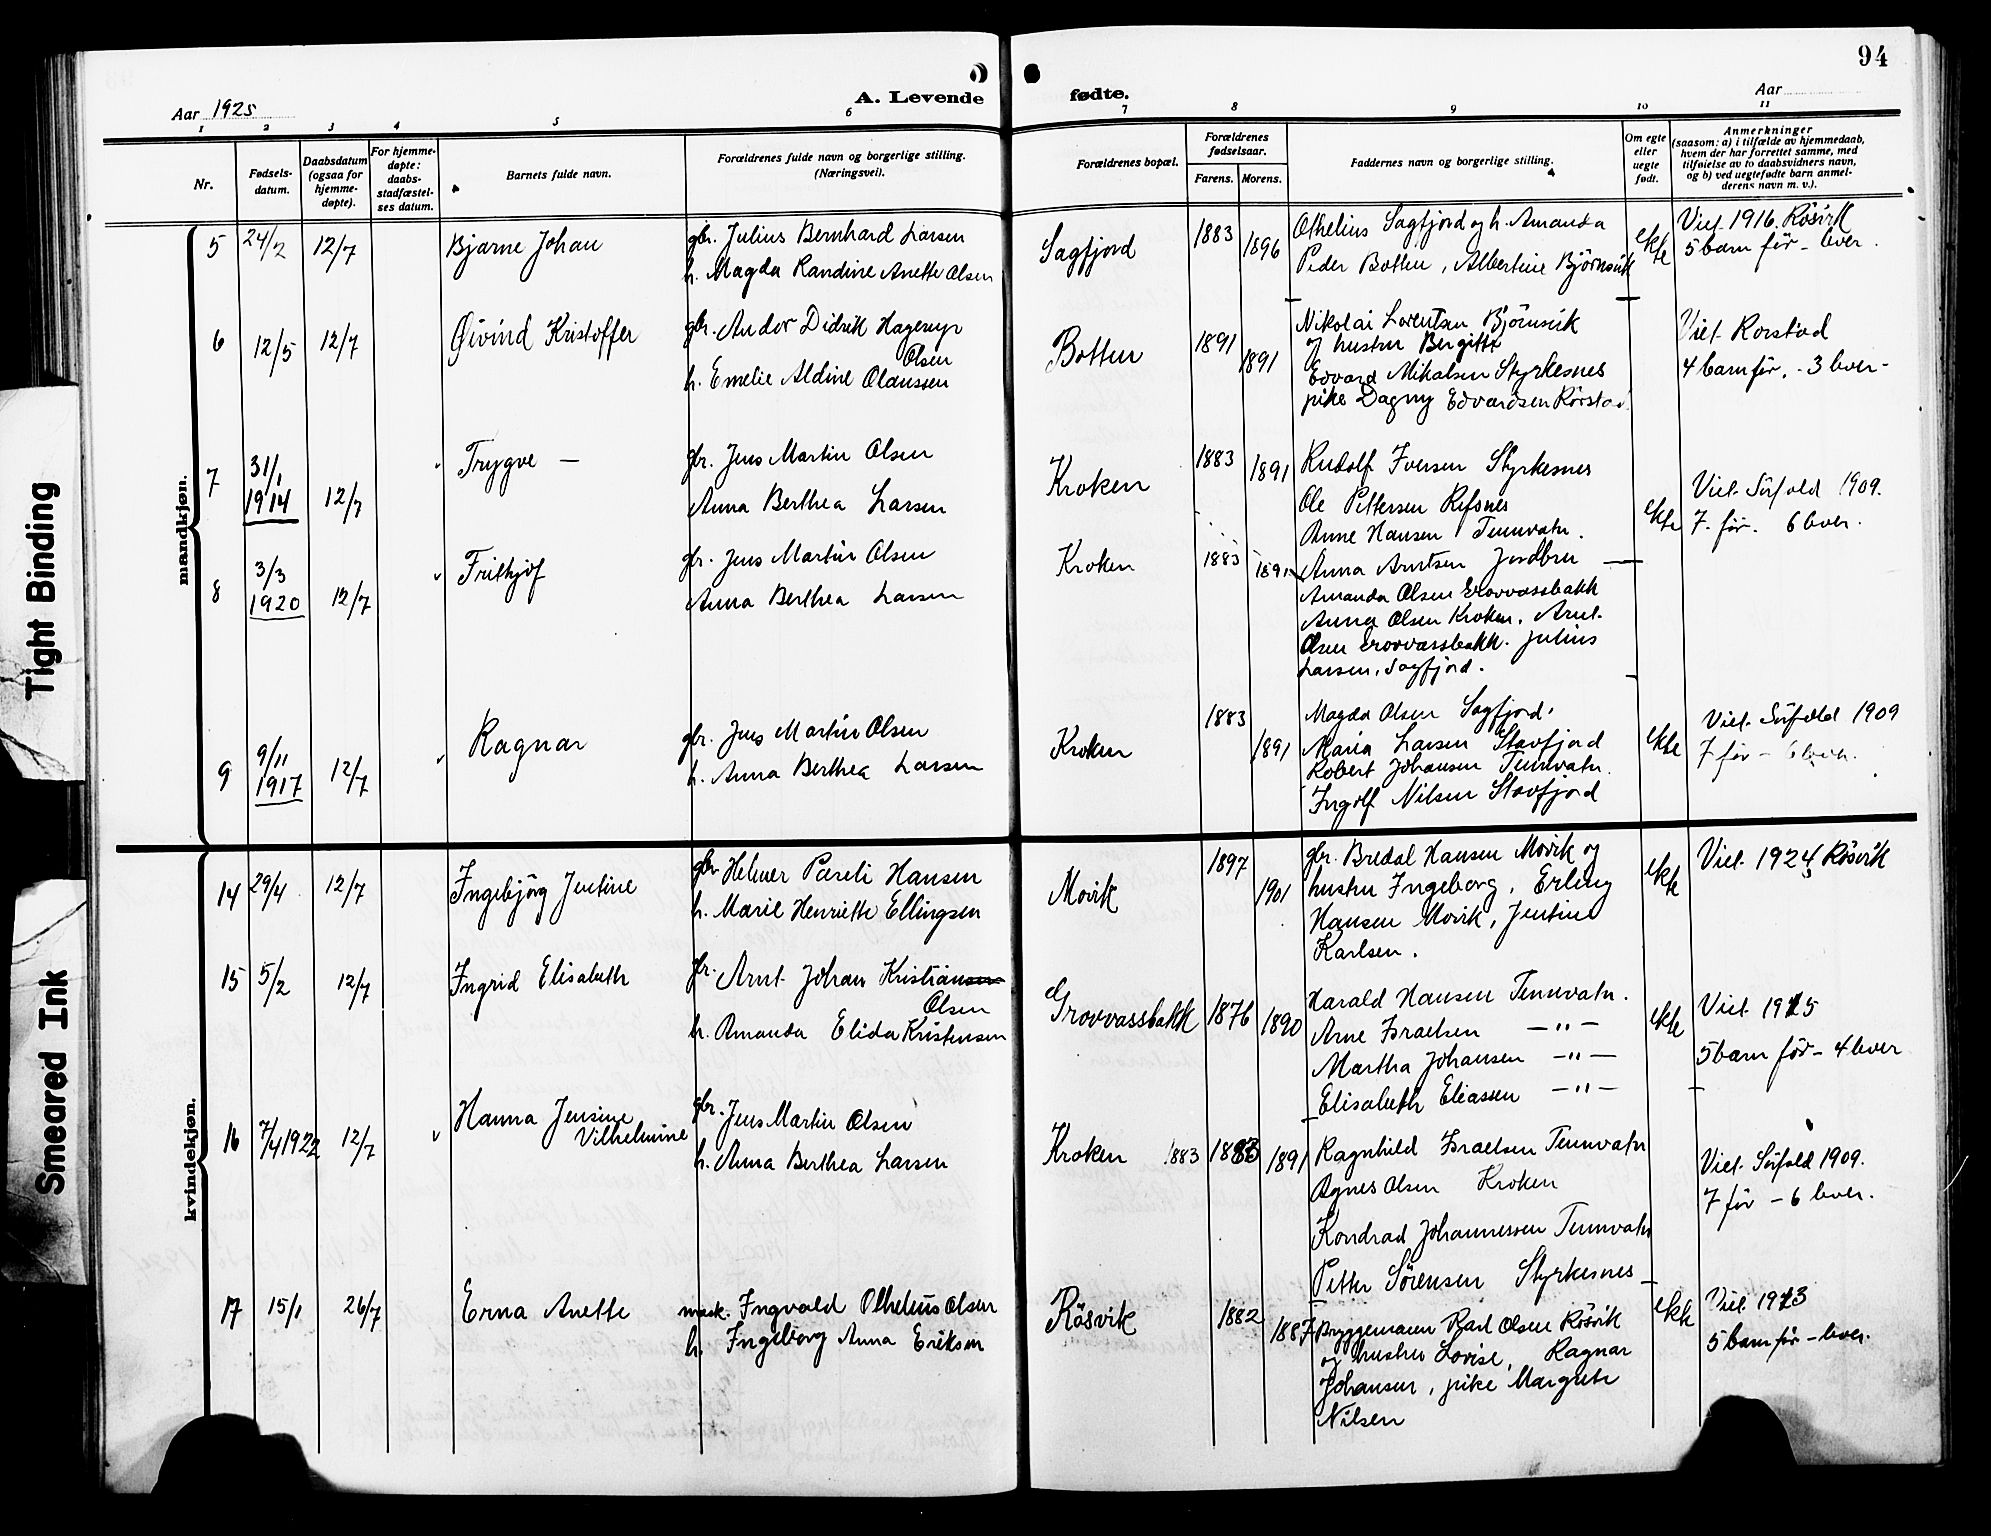 94
Aar 1925
A. Levende
fødte.
Aar
1 2 3 4 5 6 7 8 9 10 11
Nr.
Fødsels-
datum.
Daabsdatum
(ogsaa for
hjemme-
døpte).
For hjemme-
døpte:
daabs-
stadfæstel-
ses datum.
Barnets fulde navn.
Forældrenes fulde navn og borgerlige stilling.
(Næringsvei).
Forældrenes bopæl.
Forældrenes
fødselsaar.
Farens. Morens.
Faddernes navn og borgerlige stilling.
Om egte
eller
uegte
født.
Anmerkninger
(saasom: a) i tilfælde av hjemmedaab,
hvem der har forrettet samme, med
tilføielse av to daabsvidners navn,
og b) ved uegtefødte barn anmel-
derens navn m. v.).
mandkjøn.
5 24/2 12/7 Bjarne Johan
gbr. Julius Bernhard Larsen
h. Magda Randine Anette Olsen
Sagfjord 1883 1896
Othelius Sagfjord og h. Amanda
Peder Botten, Albertine Björnsvik
ekte
Viet 1916 Rösvik
5 barn för - lever.
6 12/5 12/7 Øivind Kristoffer
gbr. Andor Didrik Hagerup
Olsen
h. Emelie Aldine Olaussen
Botten 1891 1891
Nikolai Lorentsen Björnsvik
og hustru Bergitte
Edvard Mikalsen Styrkesnes
pike Dagny Edvardsen Rörstad
Viet Rorstad
4 barn för. - 3 lever -
7 31/1 1914 12/7 Trygve -
gbr. Jens Martin Olsen
Anna Berthea Larsen
Kroken 1883 1891
Rudolf Iversen Styrkesnes
Ole Pettersen Refsnes
Anne Hansen Tennvatn.
ekte
Viet Sörfold 1909.
7 för. 6 lever.
8 3/3 1920 12/7 Frithjof
gbr. Jens Martin Olsen
Anna Berthea Larsen
Kroken 1883 1891
Anna Arntsen Jordbru
Amanda Olsen Grovvassbakk
Anna Olsen Kroken, Arnt
Olsen Grovvassbakk. Julius
Larsen, Sagfjord.
9 9/11 1917 12/7 Ragnar
gbr. Jens Martin Olsen
h. Anna Berthea Larsen
Kroken 1883 1891
Magda Olsen Sagfjord,
Maria Larsen Stavfjord
Robert Johansen Tennvatn.
Ingolf Nilsen Stavfjord
ekte
Viet Sörfold 1909
7 för - 6 lever.
kvindekjøn.
14 29/4 12/7 Ingebjörg Jentine
gbr Helmer Pareli Hansen
h. Marie Henriette Ellingsen
Movik 1897 1901
gbr. Bredal Hansen Movik og
hustru Ingeborg, Erling
Hansen Movik, Jentine
Karlsen.
ekte
Viet 1924 Rösvik
15 5/2 12/7 Ingrid Elisabeth
gbr. Arnt Johan Kristiansen
Olsen
h. Amanda Elida Kristensen
Grovvassbakk 1876 1890
Harald Hansen Tennvatn.
Arne Israelsen — " —
Martha Johansen — " —
Elisabeth Eliassen — " —
ekte
Viet 1915
5 barn för - 4 lever
16 7/4 1922 12/7 Hanna Jensine
Vilhelmine
gbr. Jens Martin Olsen
h. Anna Berthea Larsen
Kroken 1883 1883 1891
Ragnhild Israelsen Tennvatn
Agnes Olsen Kroken
Kondrad Johannessen Tennvatn
Petter Sörensen Styrkesnes
Viet Sörfold 1909.
7 för - 6 lever.
17 15/1 26/7 Erna Anette
mask. Ingvald Othelius Olsen
h. Ingeborg Anna Eriksen
Rösvik 1882 1887
Bryggemann Karl Olsen Rösvik
og hustru Lovise, Ragnar
Johansen, pike Margrete
Nilsen
ekte
Viet 1913
5 barn för - lever.
Tight Binding
Smeared Ink